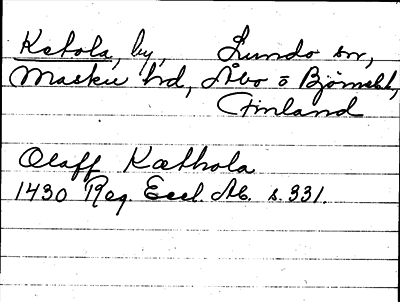 Ketola, by, Lundo sn,
Masku hd, Åbo o Björnebl,
Finland
Olaff Kæthola
1430 Reg. Eccl. Ab. s. 331.